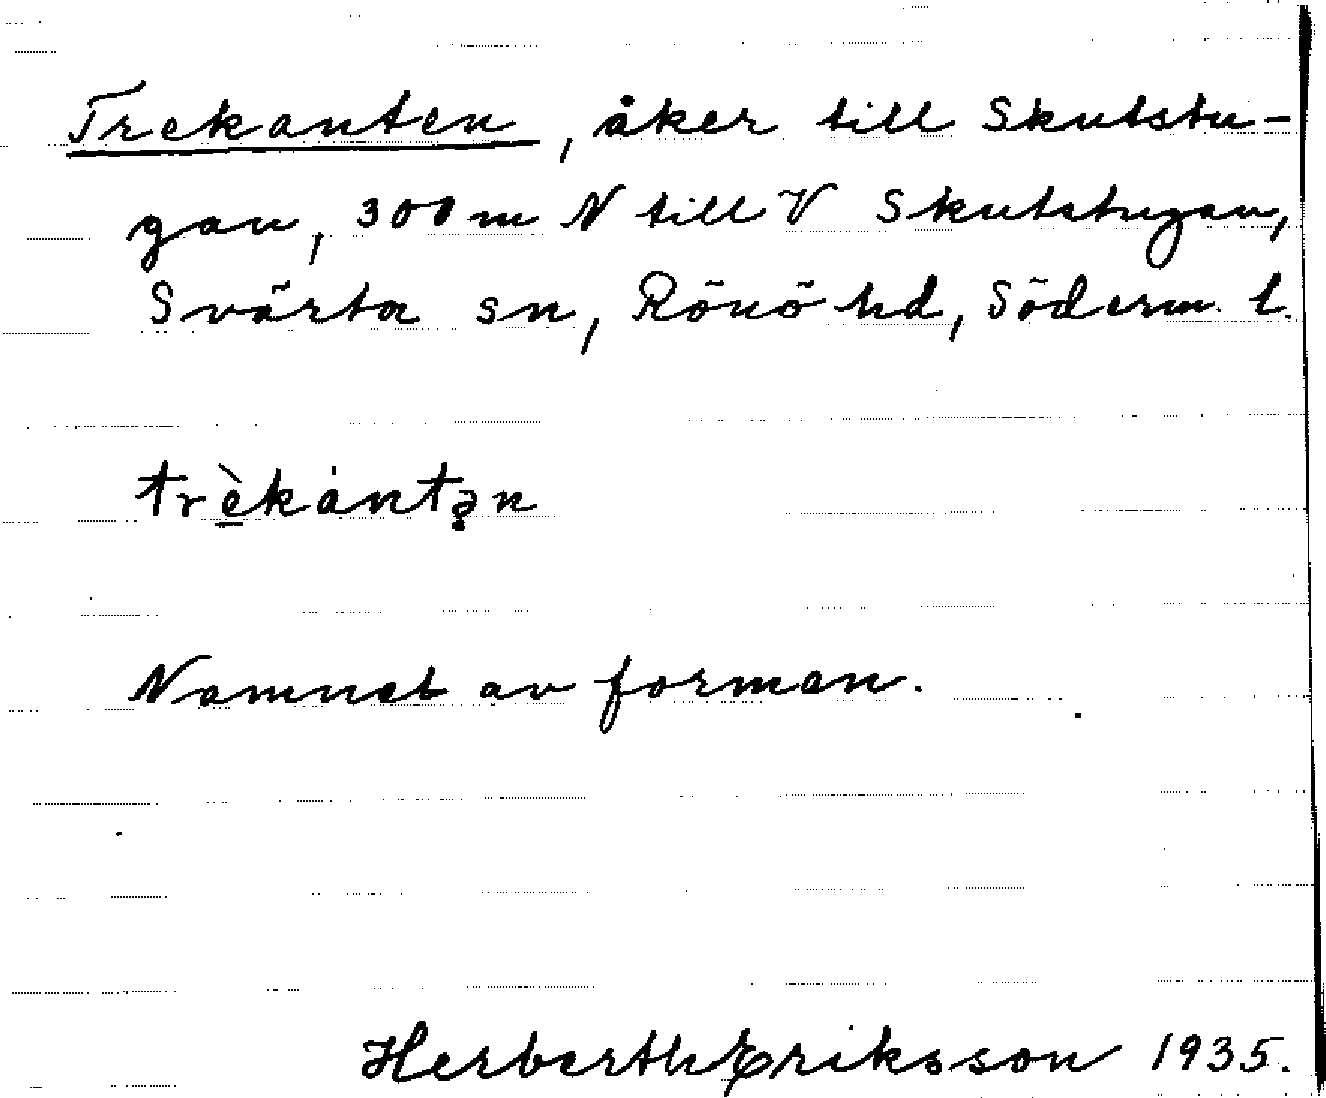 Trekanten, åker till Skutstu-
gan, 300 m N till V Skutstugan,
Svärta sn, Rönö hd, Söderm. l.
trèkántən
Namnet av forman.
Herberth Eriksson 1935.